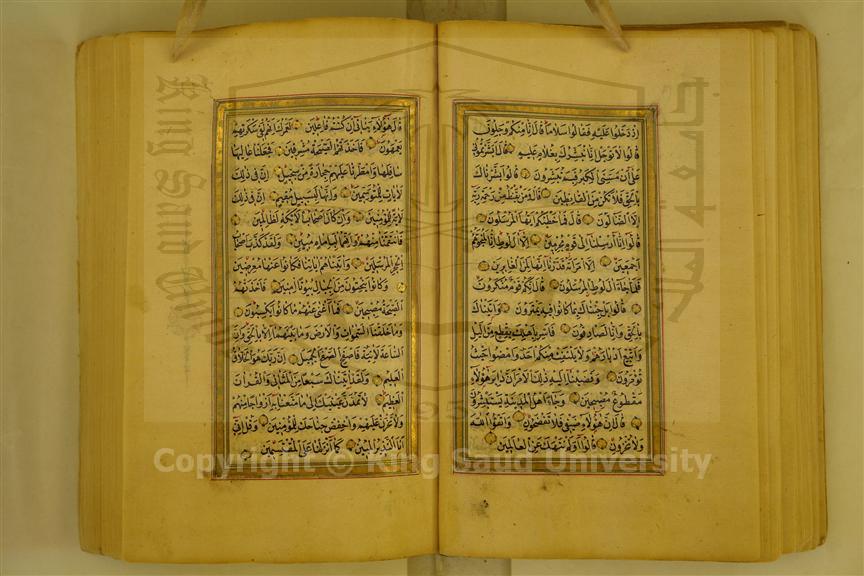 اذ دخلوا عليه فقالوا سلاما قال انا منكم وجلون
قالوا لا توجل انا نبشرك بغلام عليم قال ابشرتموني
على ان مسني الكبر فبم تبشرون قالوا بشرناك
بالحق فلا تكن من القانطين قال ومن يقنط من رحمة ربه
الا الضالون قال فما خطبكم ايها المرسلون
قالوا انا ارسلنا الى قوم مجرمين الا ال لوط انا لمنجوهم
اجمعين الا امراته قدرنا انها لمن الغابرين
فلما جاء ال لوط المرسلون قال انكم قوم منكرون
قالوا بل جئناك بما كانوا فيه يمترون واتيناك
بالحق وانا لصادقون فاسر باهلك بقطع من الليل
واتبع ادبارهم ولا يلتفت منكم احد وامضوا حيث
تؤمرون وقضينا اليه ذلك الامر ان دابر هؤلاء
مقطوع مصبحين وجاء اهل المدينة يستبشرون
قال ان هؤلاء ضيفي فلا تفضحون واتقوا الله
ولا تخزون قالوا اولم ننهك عن العالمين
قال هؤلاء بناتي ان كنتم فاعلين لعمرك انهم لفي سكرتهم
يعمهون فاخذتهم الصيحة مشرقين فجعلنا عاليها
سافلها وامطرنا عليهم حجارة من سجيل ان في ذلك
لايات للمتوسمين وانها لبسبيل مقيم ان في ذلك
لاية للمؤمنين وان كان اصحاب الايكة لظالمين
فانتقمنا منهم وانهما لبامام مبين ولقد كذب اصحاب
الحجر المرسلين واتيناهم اياتنا فكانوا عنها معرضين
وكانوا ينحتون من الجبال بيوتا امنين فاخذتهم
الصيحة مصبحين فما اغنى عنهم ما كانوا يكسبون
وما خلقنا السموات والارض وما بينهما الا بالحق وان
الساعة لاتية فاصفح الصفح الجميل ان ربك هو الخلاق
العليم ولقد اتيناك سبعا من المثاني والقران
العظيم لا تمدن عينيك الى ما متعنا به ازواجا منهم
ولا تحزن عليهم واخفض جناحك للمؤمنين وقل اني
انا النذير المبين كما انزلنا على المقتسمين
King Saud University
جامعة الملك سعود
1957
Copyright © King Saud University